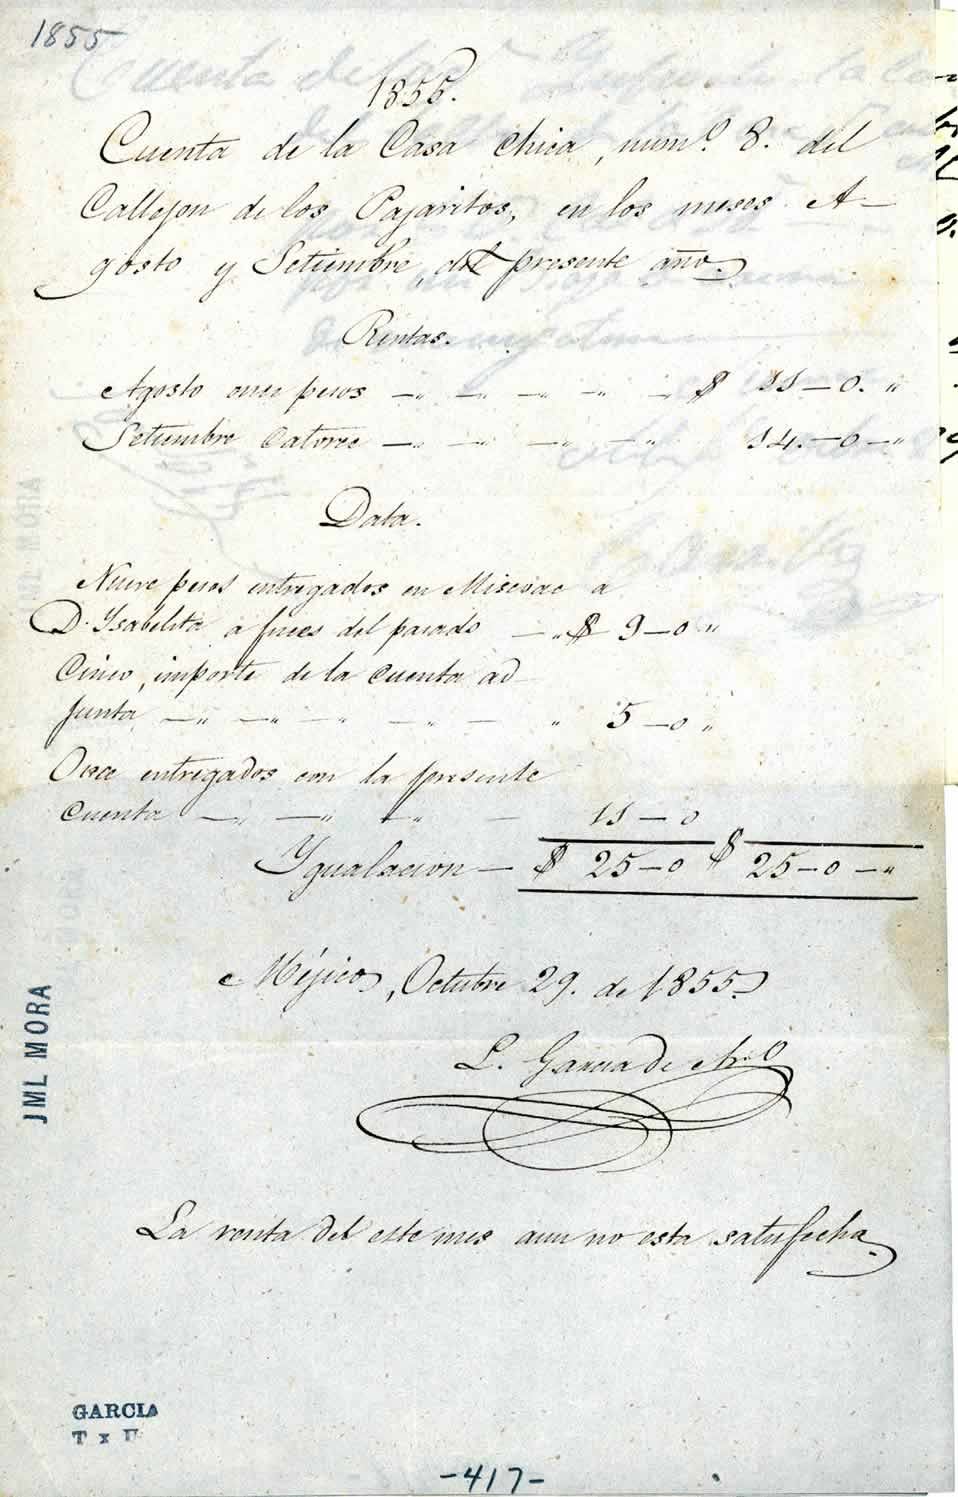 1855
1855.
Cuenta de la Casa chica, num.º 8. del
Callejon de los Pajaritos, en los meses A-
gosto y Setiembre, del presente año.
Rentas.
Agosto once pesos — „ — „ — „ — „ — „ $ 11—0. „
Setiembre Catorce — „ — „ — „ — „ 14.—0—„
Data.
Nueve pesos entregados en Miscoac a
D. Ysabelita a fines del pasado — „ $ 9—0 „
Cinco, importe de la cuenta ad-
junta — „ — „ — „ — „ — „ 5—0 „
Once entregados con la presente
cuenta — „ — „ — „ — 11—0
Ygualacion — $ 25—0 $ 25—0—„
Méjico, Octubre 29. de 1855.
L. Garcia de
La renta del este mes aun no esta satisfecha.
JML MORA
GARCIA
-417-